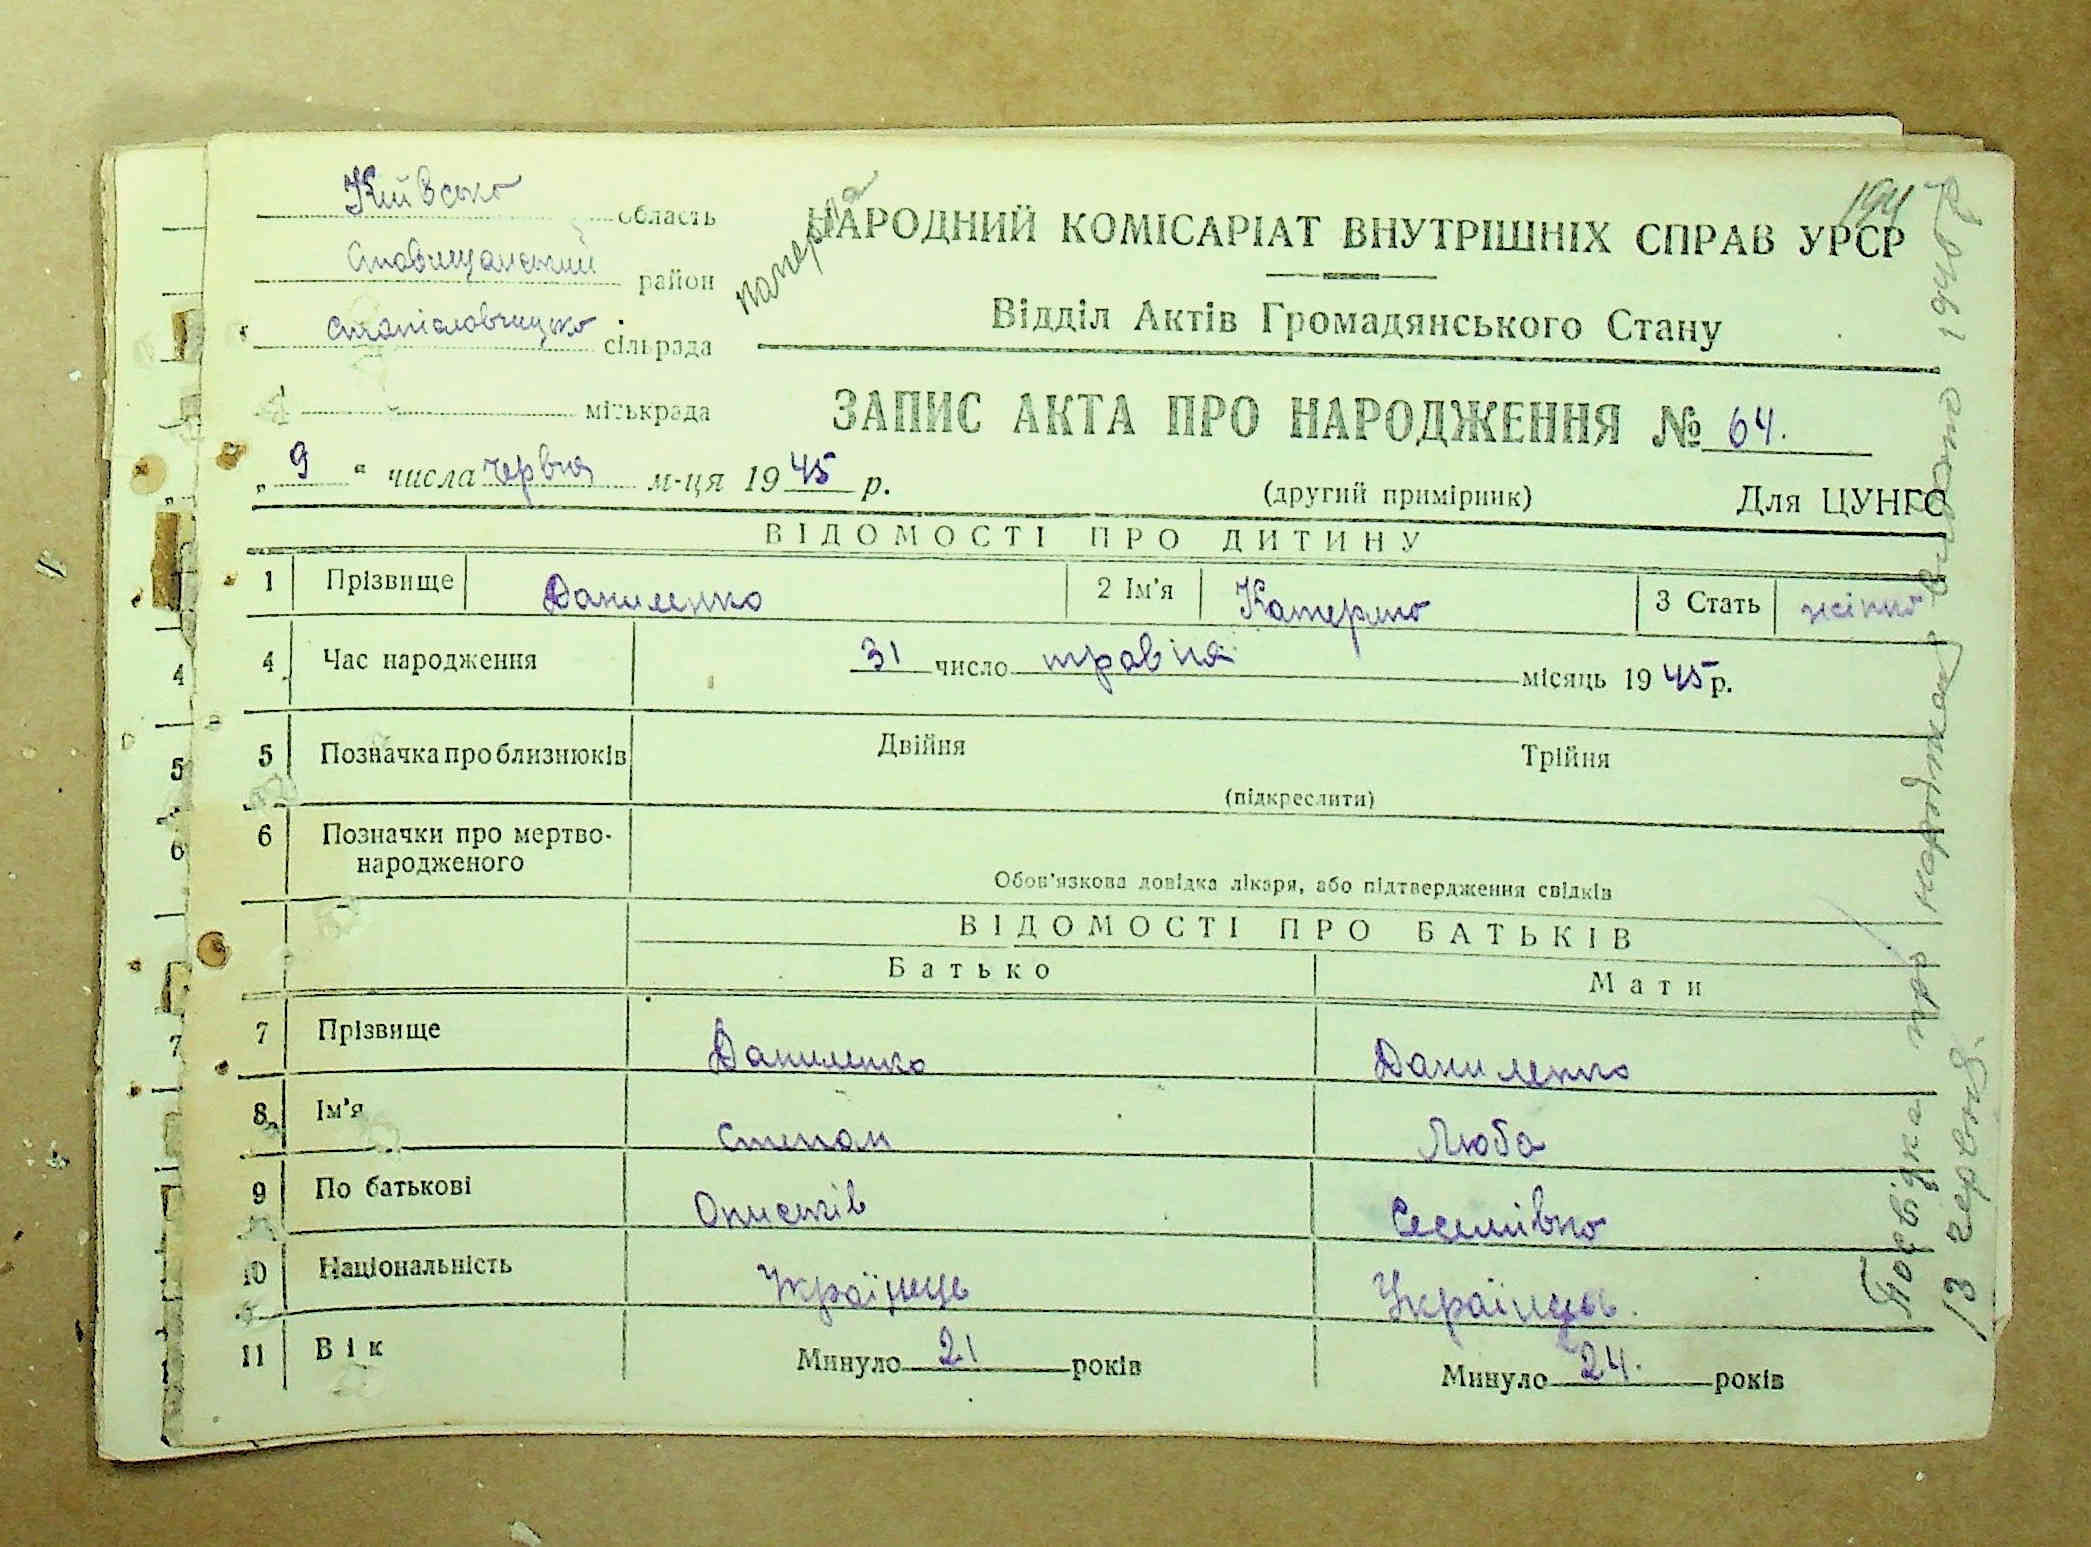 Київсько область
Ставищанський район
Станіславчицько сільрада
міськрада
„ 9 “ числа червня м-ця 1945 р.
патерна
194
НАРОДНИЙ КОМІСАРІАТ ВНУТРІШНІХ СПРАВ УРСР
Відділ Актів Громадянського Стану
ЗАПИС АКТА ПРО НАРОДЖЕННЯ № 64.
(другий примірник) Для ЦУНГО
ВІДОМОСТІ ПРО ДИТИНУ
1 Прізвище Даниленко 2 Ім'я Катерина 3 Стать жіноч
4 Час народження 31 число травня місяць 1945 р.
5 Позначка про близнюків Двійня Трійня
(підкреслити)
6 Позначки про мертво-
народженого
Обов'язкова довідка лікаря, або підтвердження свідків
ВІДОМОСТІ ПРО БАТЬКІВ
Батько Мати
7 Прізвище Даниленко Даниленко
8 Ім'я Степан Люба
9 По батькові
10 Національність Українець Українець.
11 Вік Минуло 21 років Минуло 24. років
про народження видано 1945 р
13 червня.
4
5
6
7